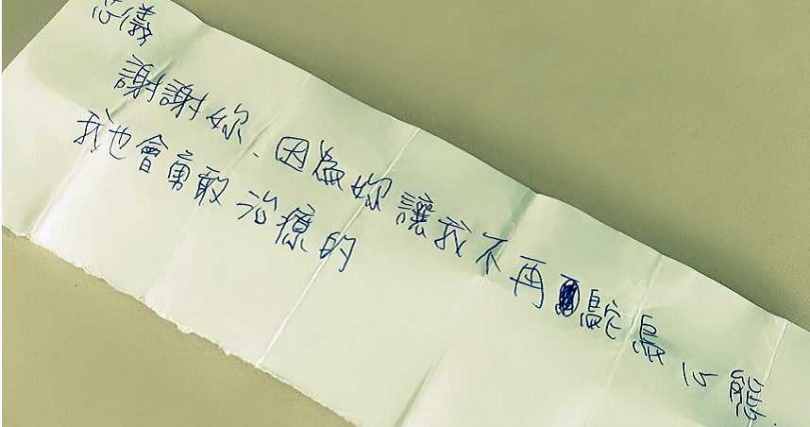 忠儀
謝謝妳、因為妳讓我不再鴕鳥心態.
我也會勇敢治療的